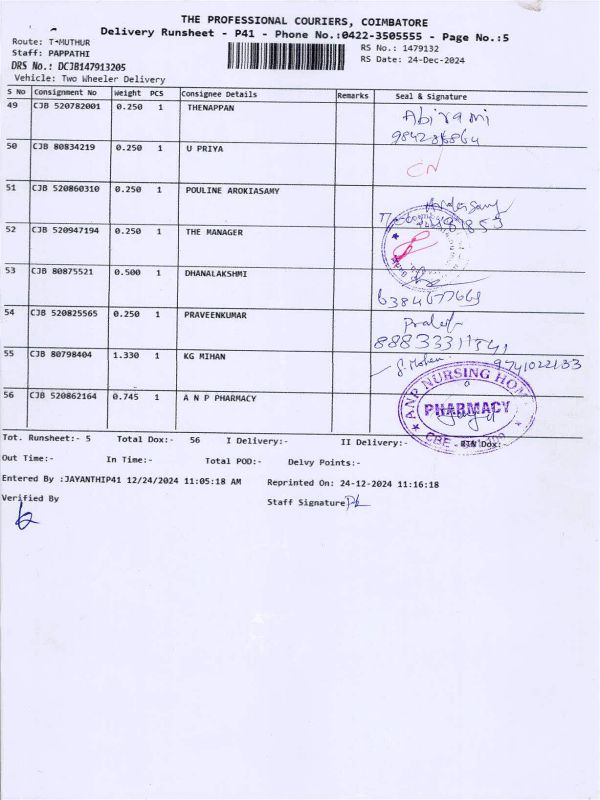 THE PROFESSIONAL COURIERS, COIMBATORE
Delivery Runsheet - P41 - Phone No.:0422-3505555 - Page No.:5
Route: T-MUTHUR
RS No.: 1479132
Staff: PAPPATHI
RS Date: 24-Dec-2024
DRS No.: DCJB147913205
Vehicle: Two Wheeler Delivery
S No Consignment No Weight PCS Consignee Details Remarks Seal & Signature
49 CJB 520782001 0.250 1 THENAPPAN Abirami
50 CJB 80834219 0.250 1 U PRIYA CN
51 CJB 520860310 0.250 1 POULINE AROKIASAMY
52 CJB 520947194 0.250 1 THE MANAGER
53 CJB 80875521 0.500 1 DHANALAKSHMI
6384677669
54 CJB 520825565 0.250 1 PRAVEENKUMAR
55 CJB 80798404 1.330 1 KG MIHAN 9741022133
56 CJB 520862164 0.745 1 A N P PHARMACY ANP NURSING HOME PHARMACY
Tot. Runsheet:- 5 Total Dox:- 56 I Delivery:- II Delivery:- RTN Dox:
Out Time:- In Time:- Total POD:- Delvy Points:-
Entered By :JAYANTHIP41 12/24/2024 11:05:18 AM Reprinted On: 24-12-2024 11:16:18
Verified By Staff Signature